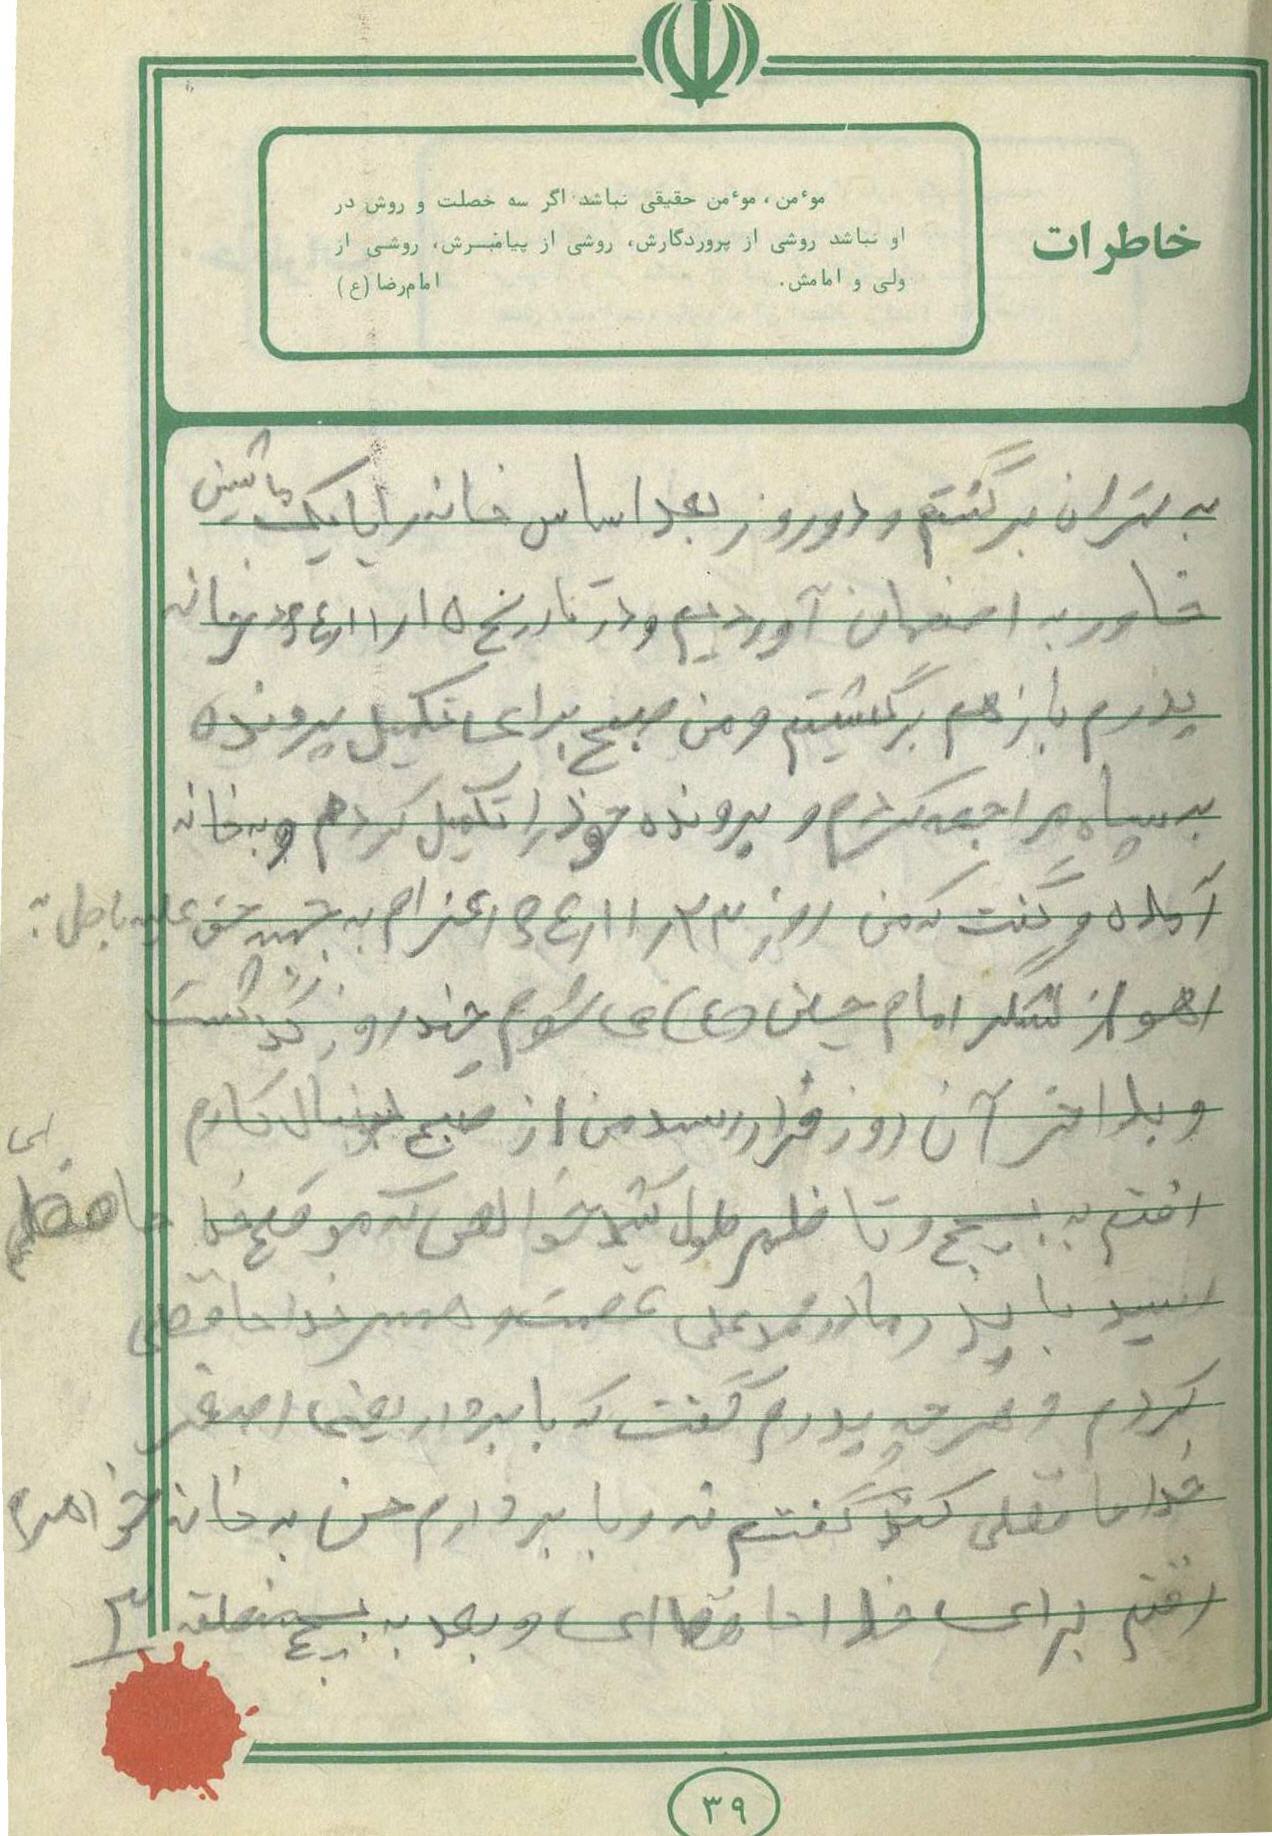 خاطرات
موٴمن، موٴمن حقیقی نباشد اگر سه خصلت و روش در
او نباشد روشی از پروردگارش، روشی از پیامبرش، روشی از
ولی و امامش.
امام‌رضا (ع)
به تهران برگشتم و دو روز بعد اساس خانه را با یک ماشین
خاور به اصفهان آوردیم و در تاریخ ۱۵ر۱۱ر۶۴ خانه
پدرم باز هم برگشتیم و من صبح برای تکمیل پرونده
به سپاه مراجعه کردم و پرونده خود را تکمیل کردم و به خانه
آمده و گفت که من روز ۲۳ر۱۱ر۶۴ اعزام به جبهه حق علیه باطل به
اهواز لشگر امام حسین (ع) می شوم چند روز گذشت
و بلاخر آن روز فرا رسد من از صبح دنبال کارم
رفتم به بسیج و تا ظهر طول کشید که موقع خدا حافظی
رسید با پدر و مادر محمد علی عصمت و همسر خدا حافظی
کردم و هر چه پدرم گفت که با برادر یعنی اصغر
خدا حافظی کنم گفتم نه و با برادرم حسن به خانه خواهرم
رفتم برای خدا حافظ ای و بعد به بسیج منطقه ۳
۳۹